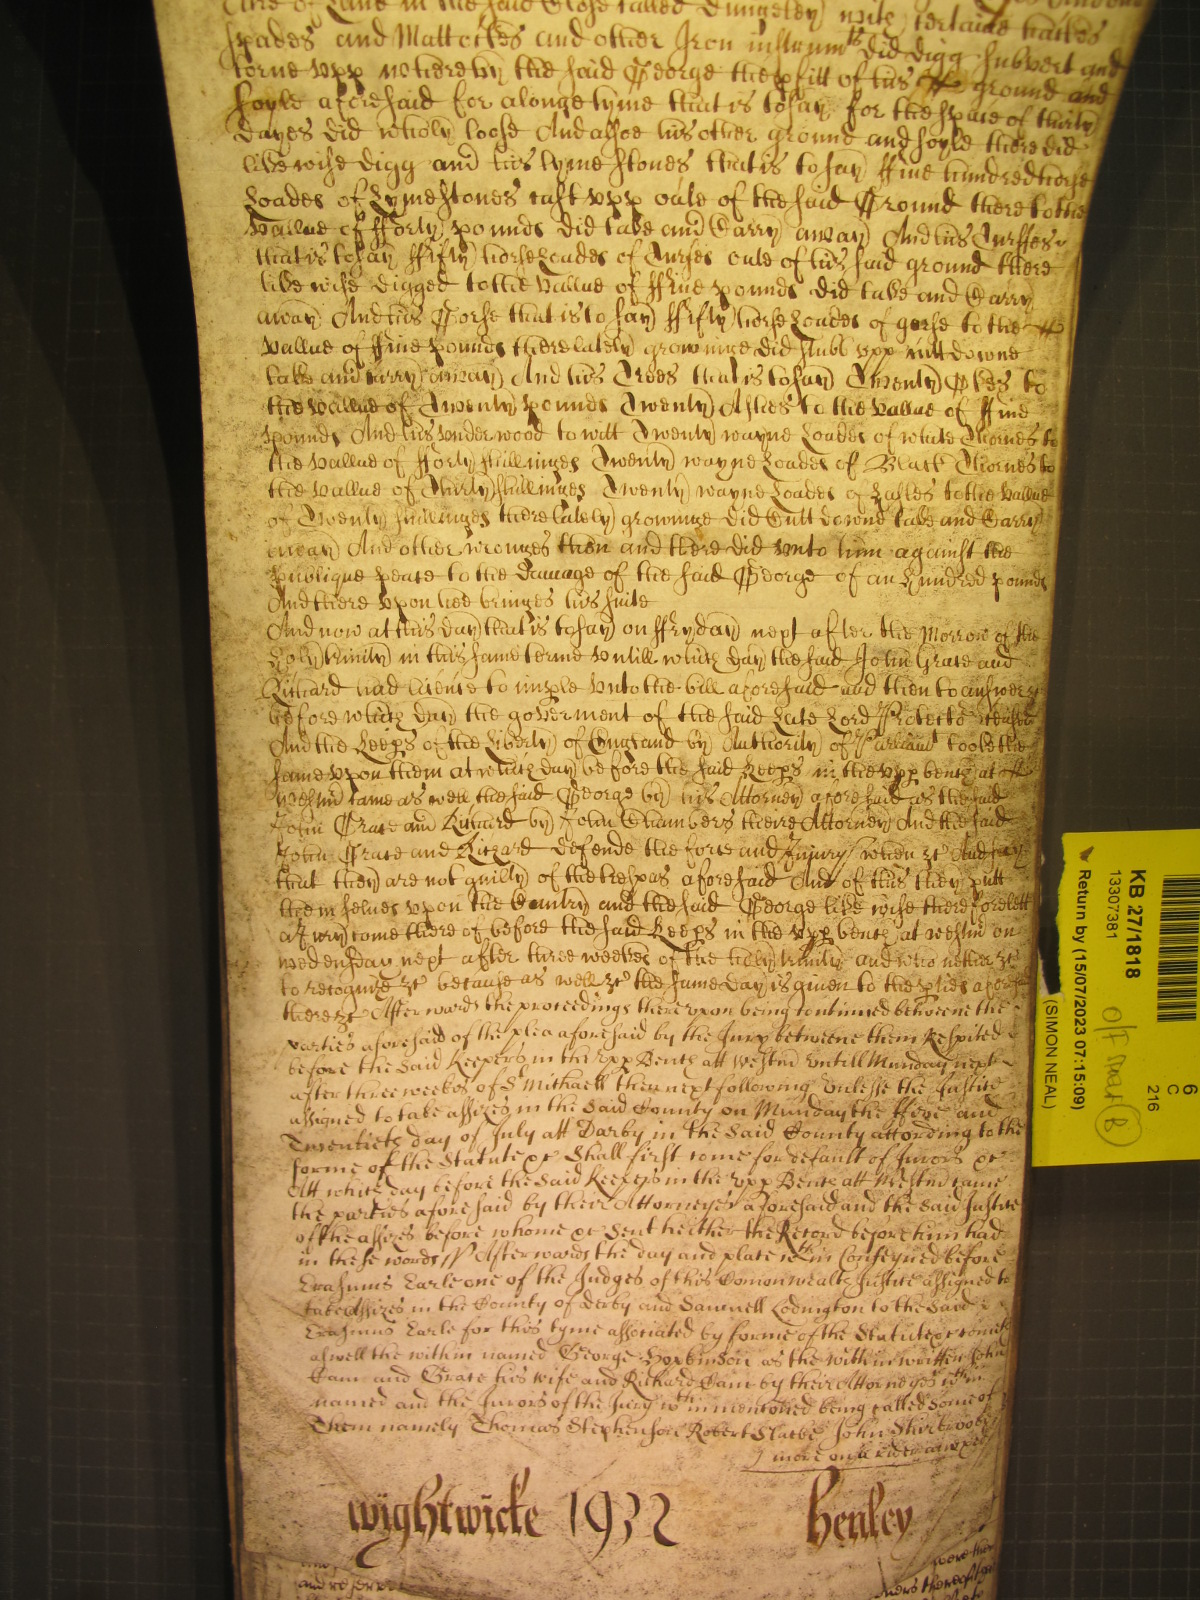 Close of Land in the said Close called Dungeley with certaine
spades and Mattockes and other Iron instrumts did digg subvert and
torne upp whereby the said George the pfitt of his ground and
soyle aforesaid for a longe tyme that is to say for the space of thirty
dayes did wholy loose And alsoe his other ground and soyle there did
likewise digg and his lyme stones that is to say ffive hundred horse
Loades of Lymestones cast upp oute of the said Ground there to the
vallue of fforty pounds did take and Carry away And his Turffes
that is to say ffifty horse Loades of Turfes oute of his said ground there
likewise digged to the vallue of ffive pounds did take and Carry
away And his Gorse that is to say ffifty horse Loades of gorse to the
vallue of ffive pounds there lately growinge did stubb upp cutt downe
take and carry away And his Trees that is to say Twenty Okes to
the vallue of Twenty pounds Twenty Ashes to the vallue of ffive
pounds And his underwood to witt Twenty wayne Loades of white Thornes to
the vallue of fforty shillinges Twenty wayne Loades of Black Thornes to
the vallue of Thirty shillinges Twenty wayne Loades of hasles to the vallue
of Twenty shillinges there lately growinge did Cutt downe take and Carry
away And other wronges then and there did unto him against the
publique peace to the damage of the said George of an hundred pounds
And there upon hee bringes his suite
And now at this day that is to say on ffryday next after the Morrow of the
holy trinity in this same terme untill which day the said John Grace and
Richard had licence to imple unto the bill aforesaid and then to answer &c
before which day the goverment of the said Late Lord Protector ceased
And the Keeps of the Liberty of England by Authority of Parliamt tooke the
same upon them at which day before the said Keeps in the upp bench at
Westm came as well the said George by his Attorney aforesaid as the said
John Grace and Richard by John Chambers theire Attorney And the said
John Grace and Richard defende the force and Injury when &c And say
that they are not guilty of the trespas aforesaid And of this they putt
them selves upon the Country and the said George likewise therefore lett
a Jury come there of before the said Keeps in the upp bench at westm on
wednesday next after three weekes of the holy trinity and who neither &c
to recognize &c because as well &c the same day is given to the pties aforesaid
there &c Afterwards the proceedings thereupon being continued betweene the
parties aforesaid of the plea aforesaid by the Jury betweene them Respited
before the said Keepers in the upp Bench att Westm untill Munday next
after three weekes of St Michaell then next following unlesse the Justice
assigned to take assizes in the said County on Munday the ffive and
Twentieth day of July att Darby in the said County according to the
forme of the Statute &c Shall first come for default of Jurors &c
Att which day before the said Keepers in the upp Bench att Westm came
the parties aforesaid by their Attorneyes aforesaid and the said Justice
of the assizes before whome &c sent hether the Record before him had
in these words // Afterwards the day and place wthin Conteyned before
Erasmus Earle one of the Judges of this Comonwealth Justice assigned to
take Assizes in the County of derby and Samuell Lodington to the said
Erasmus Earle for this tyme associated by forme of the Statute &c cometh
aswell the within named George Hopkinson as the within written John
Cam and Grace his wife and Richard Cam by their Attorneyes wthin
named and the Jurors of the Jury wthin mentioned being called some of
Them namely Thomas Stephenson Robert Clarke John Shirbrooke
more on a rider annexed
wightwicke 1932 henley
KB 27/1818
13307381
Return by (15/07/2023 07:15:09)
(SIMON NEAL)
6
C
216